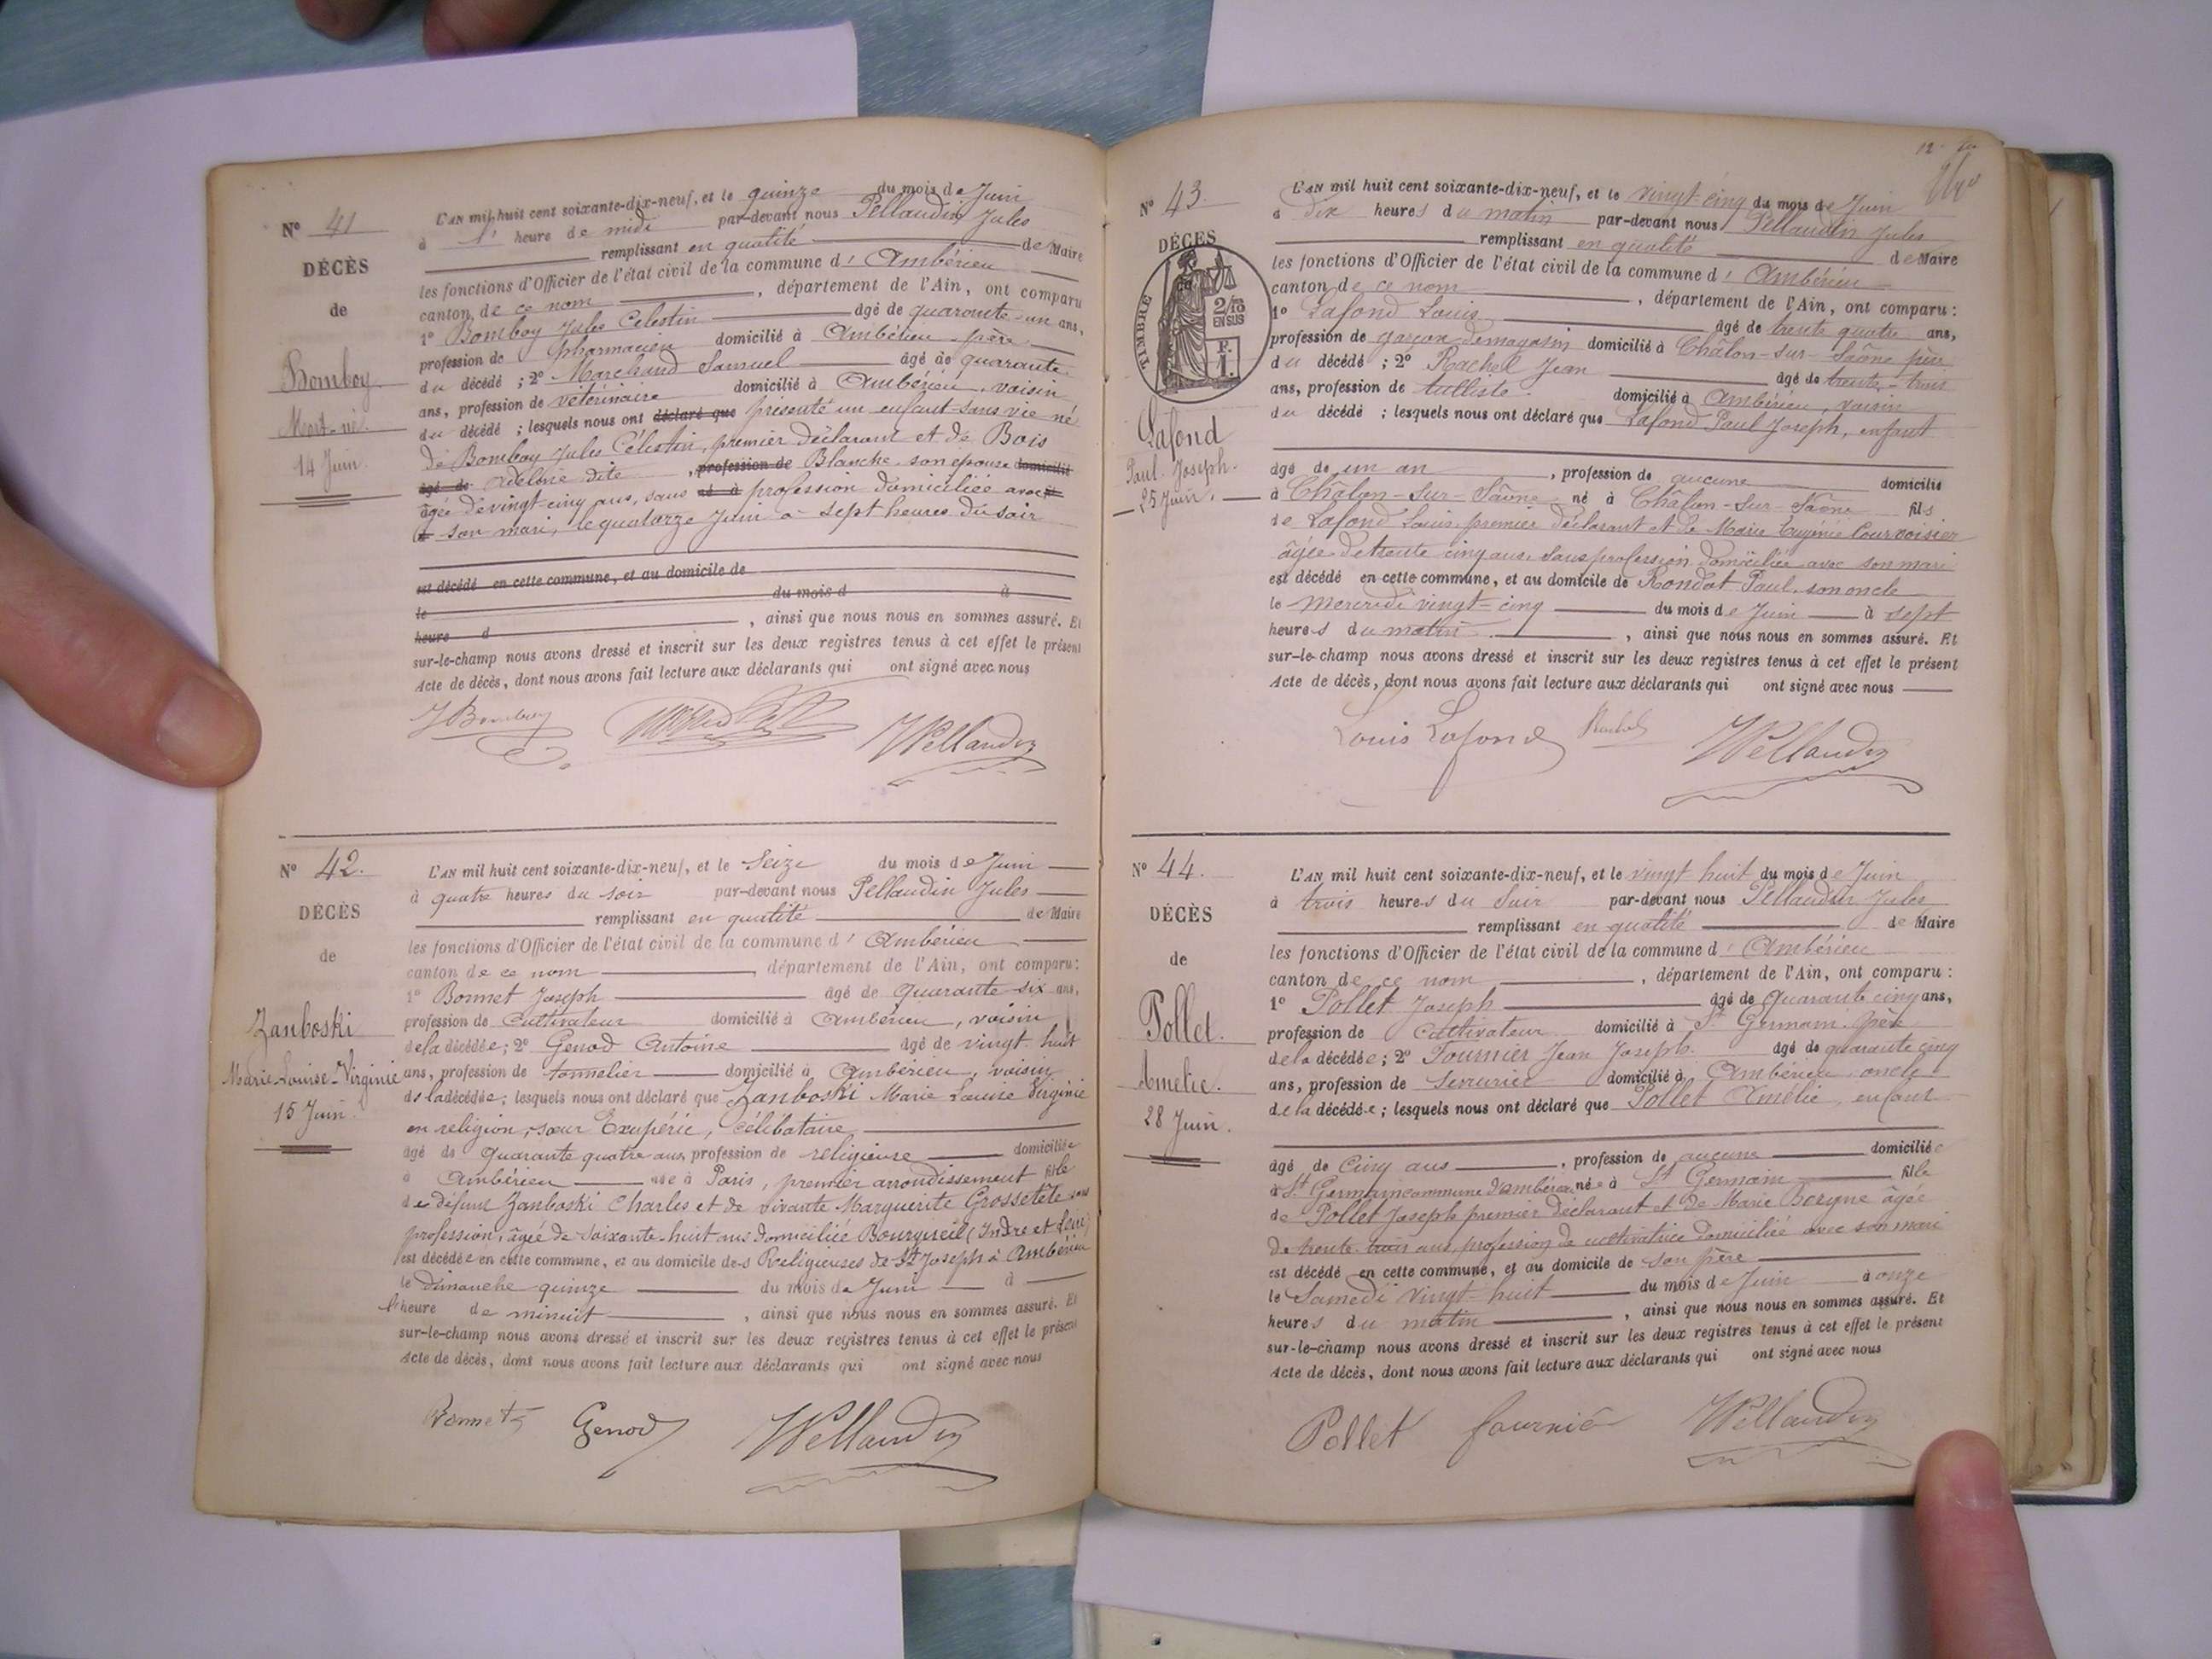 N° 41
DÉCÈS
de
Bomboy
Mort-né
14 Juin
L'AN mil huit cent soixante-dix-neuf, et le quinze du mois de Juin
à l' heure de midi par-devant nous Pellaudin Jules
remplissant en qualité de Maire
les fonctions d'Officier de l'état civil de la commune d' Ambérieu
canton de ce nom, département de l'Ain, ont comparu
1° Bomboy Jules Celestin âgé de quarante-un ans,
profession de pharmacien domicilié à Ambérieu, père
du décédé ; 2° Marchand Samuel âgé de quarante
ans, profession de vétérinaire domicilié à Ambérieu, voisin
du décédé ; lesquels nous ont déclaré que présenté un enfant sans vie né
de Bomboy Jules Célestin, premier déclarant et de Bois
âgé de Adeline dite, profession de Blanche son épouse domicilié
âgée de vingt-cinq ans, sans né à profession domiciliée avec
son mari, le quatorze Juin à sept heures du soir
est décédé en cette commune, et au domicile de
le du mois d à
heure d, ainsi que nous nous en sommes assuré. Et
sur-le-champ nous avons dressé et inscrit sur les deux registres tenus à cet effet le présent
Acte de décès, dont nous avons fait lecture aux déclarants qui ont signé avec nous
J Bomboy JPellaudin
N° 42.
DÉCÈS
de
Zanboski
Marie-Louise-Virginie
15 Juin
L'AN mil huit cent soixante-dix-neuf, et le Seize du mois de Juin
à quatre heures du soir par-devant nous Pellaudin Jules
remplissant en qualité de Maire
les fonctions d'Officier de l'état civil de la commune d' Ambérieu
canton de ce nom, département de l'Ain, ont comparu :
1° Bonnet Joseph âgé de quarante six ans,
profession de cultivateur domicilié à Ambérieu, voisin
de la décédée ; 2° Genod Antoine âgé de vingt-huit
ans, profession de tonnelier domicilié à Ambérieu, voisin
de la décédée ; lesquels nous ont déclaré que Zanboski Marie Louise Virginie
en religion, sœur Exupérie, célibataire,
âgé de quarante quatre ans, profession de religieuse domiciliée
à Ambérieu née à Paris, premier arrondissement fille
de défunt Zanboski Charles et de vivante Marguerite Grossetête sans
profession, âgée de soixante-huit ans domiciliée Bourgueil (Indre et Loire)
est décédée en cette commune, et au domicile des Religieuses de St Joseph à Ambérieu
le dimanche quinze du mois de Juin à
l'heure de minuit, ainsi que nous nous en sommes assuré. Et
sur-le-champ nous avons dressé et inscrit sur les deux registres tenus à cet effet le présent
Acte de décès, dont nous avons fait lecture aux déclarants qui ont signé avec nous
Bonnet Genod JPellaudin
12
N° 43.
DÉCÈS
TIMBRE
2/10
EN SUS
F.
1.
Lafond
Paul-Joseph.
25 Juin.
L'AN mil huit cent soixante-dix-neuf, et le vingt-cinq du mois de Juin
à dix heures du matin par-devant nous Pellaudin Jules
remplissant en qualité de Maire
les fonctions d'Officier de l'état civil de la commune d' Ambérieu
canton de ce nom, département de l'Ain, ont comparu :
1° Lafond Louis âgé de trente quatre ans,
profession de garçon de magasin domicilié à Châlon-sur-Saône père
du décédé ; 2° Rachel Jean âgé de trente-trois
ans, profession de tulliste domicilié à Ambérieu, voisin
du décédé ; lesquels nous ont déclaré que Lafond Paul Joseph, enfant
âgé de un an, profession de aucune domicilié
à Châlon-sur-Saône né à Châlon-sur-Saône fils
de Lafond Louis premier déclarant et de Marie Eugénie Courvoisier
âgée de trente cinq ans, sans profession domiciliée avec son mari
est décédé en cette commune, et au domicile de Rondot Paul, son oncle
le Mercredi vingt-cinq du mois de Juin à sept
heures du matin, ainsi que nous nous en sommes assuré. Et
sur-le-champ nous avons dressé et inscrit sur les deux registres tenus à cet effet le présent
Acte de décès, dont nous avons fait lecture aux déclarants qui ont signé avec nous
Louis Lafond Rachel JPellaudin
N° 44.
DÉCÈS
de
Pollet.
Amélie.
28 Juin.
L'AN mil huit cent soixante-dix-neuf, et le vingt huit du mois de Juin
à trois heures du Soir par-devant nous Pellaudin Jules
remplissant en qualité de Maire
les fonctions d'Officier de l'état civil de la commune d' Ambérieu
canton de ce nom, département de l'Ain, ont comparu :
1° Pollet Joseph âgé de quarante cinq ans,
profession de cultivateur domicilié à St Germain. Père
de la décédée ; 2° Fournier Jean Joseph âgé de quarante cinq
ans, profession de serrurier domicilié à Ambérieu oncle
de la décédée ; lesquels nous ont déclaré que Pollet Amélie, enfant
âgé de Cinq ans, profession de aucune domiciliée
à St Germain commune d'Ambérieu née à St Germain fille
de Pollet Joseph premier déclarant et de Marie Beryne âgée
de trente-trois ans, profession de cultivatrice domiciliée avec son mari
est décédé en cette commune, et au domicile de son père
le Samedi vingt-huit du mois de Juin à onze
heures du matin, ainsi que nous nous en sommes assuré. Et
sur-le-champ nous avons dressé et inscrit sur les deux registres tenus à cet effet le présent
Acte de décès, dont nous avons fait lecture aux déclarants qui ont signé avec nous
Pollet fournié JPellaudin